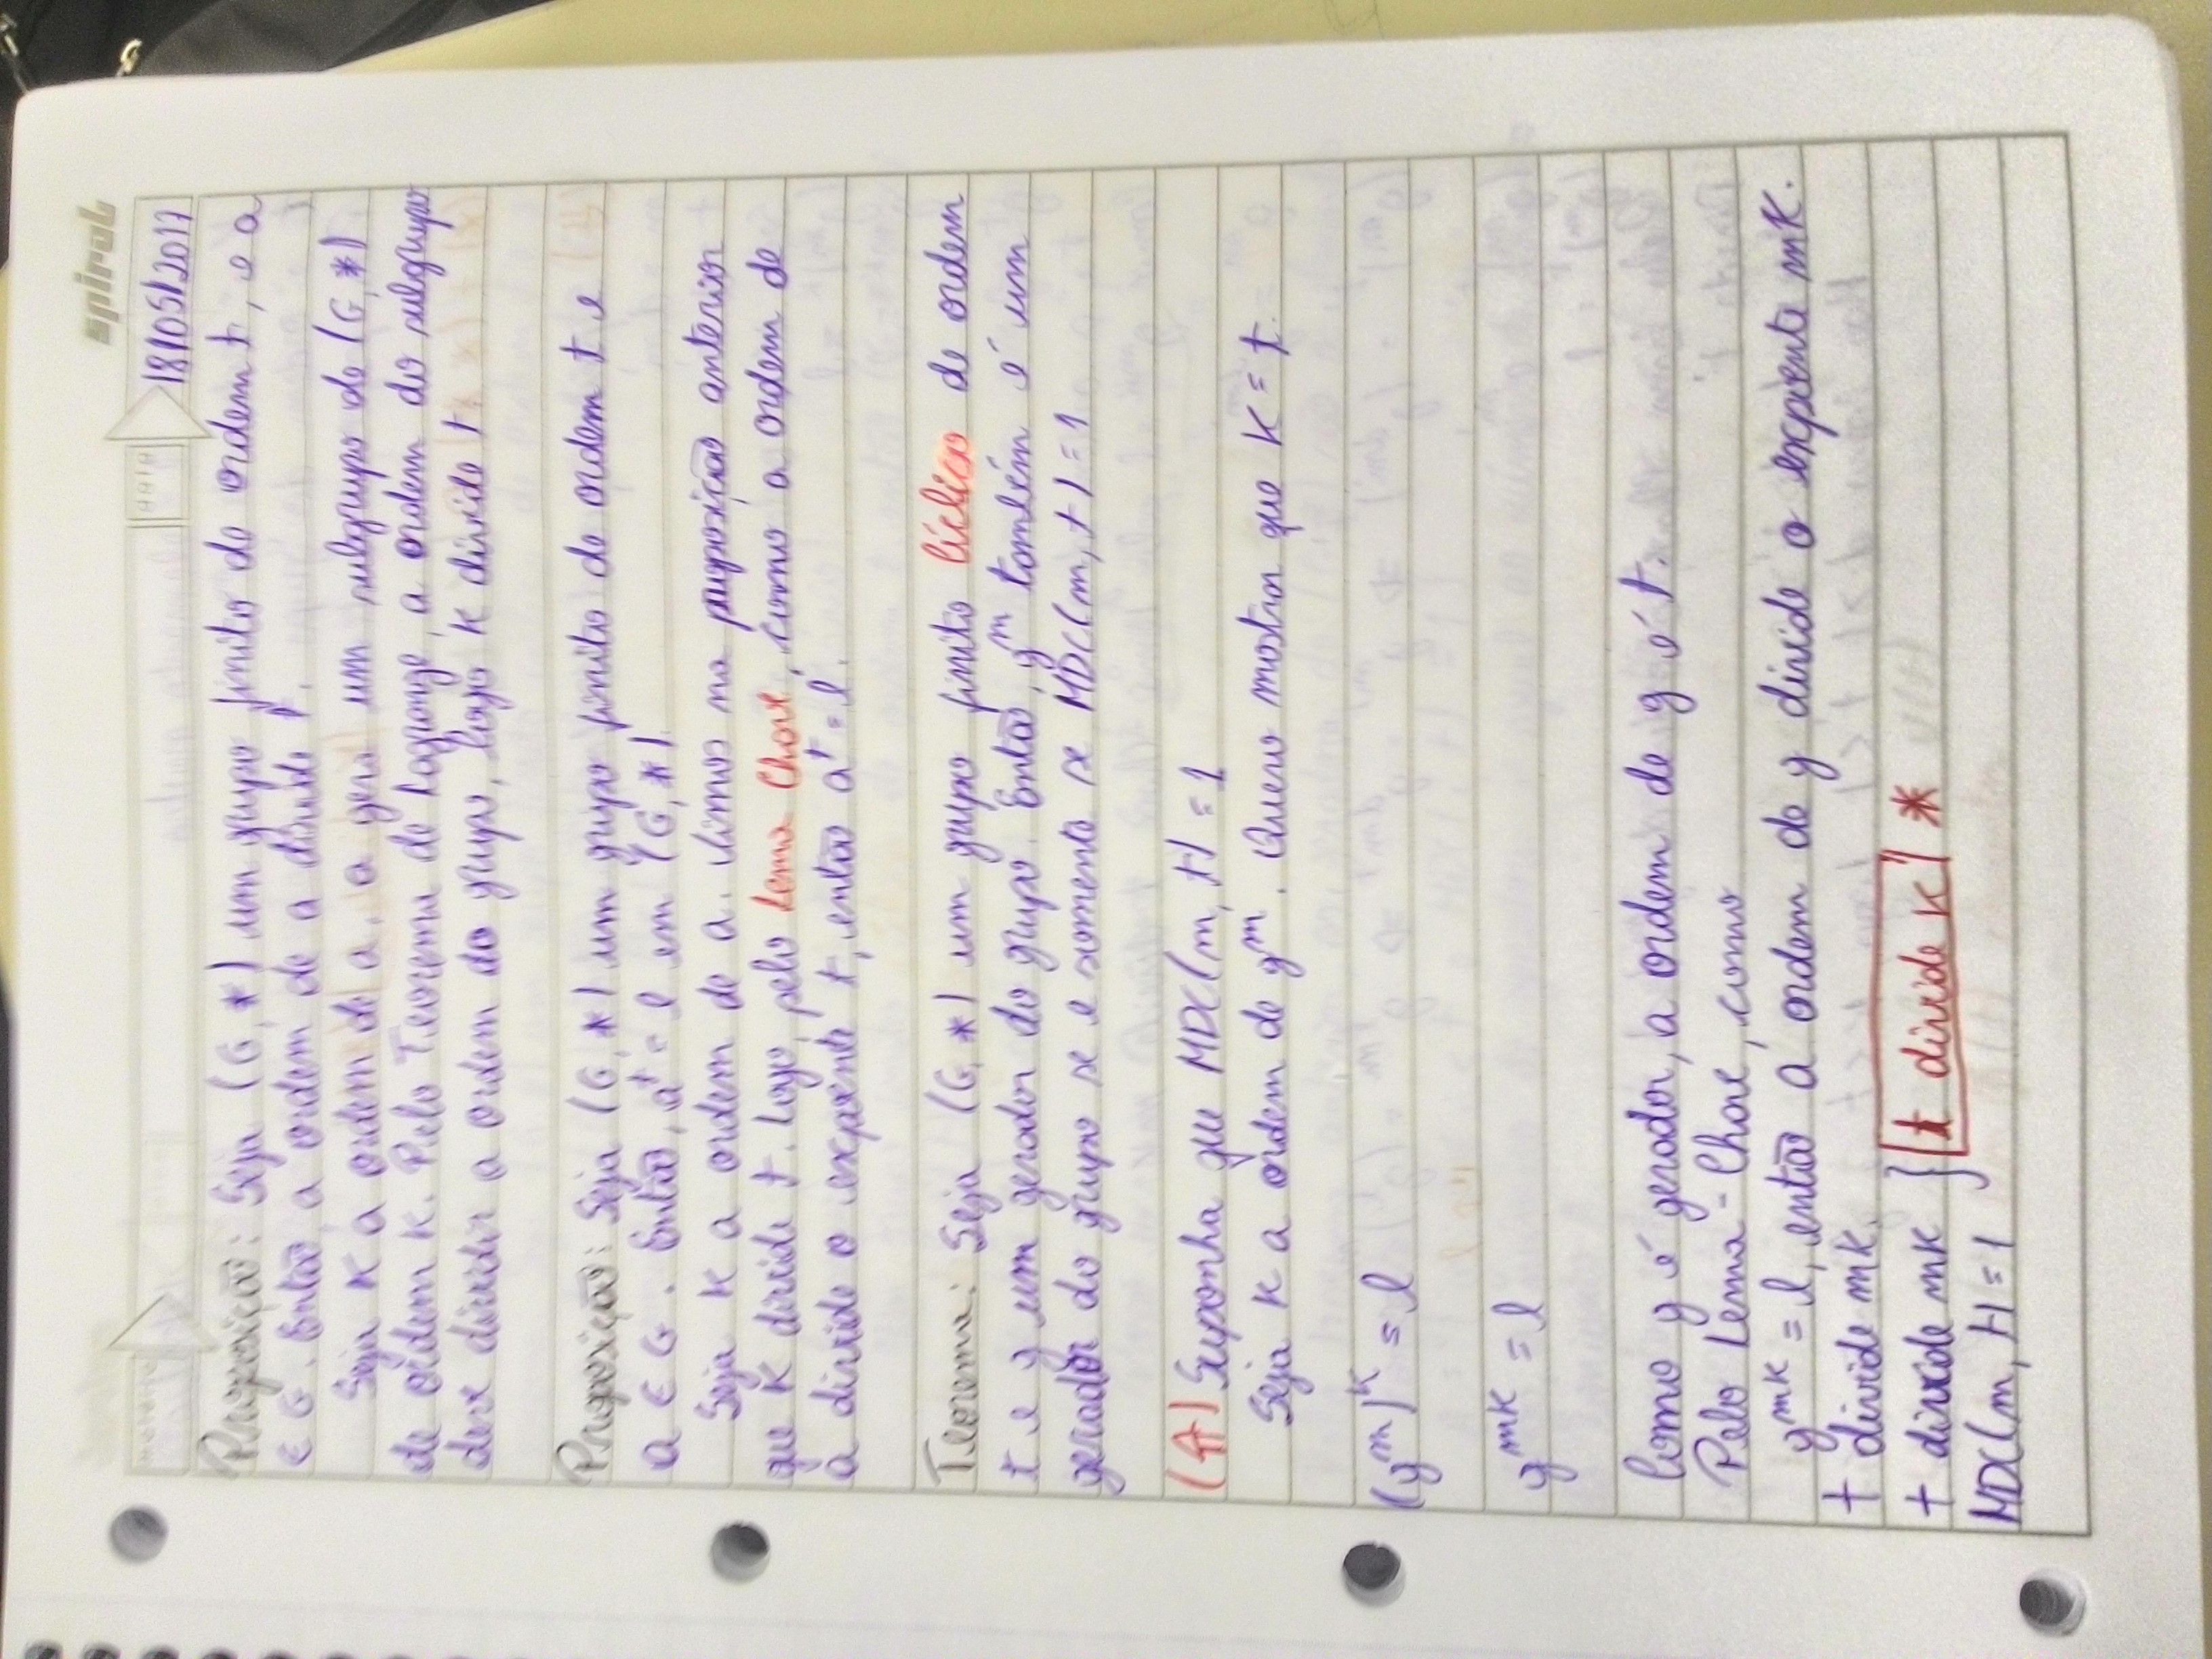 spiral
18/05/2017
Proposição: Seja (G, *) um grupo finito de ordem t, e a
∈ G. Então, a ordem de a divide t.
Seja K a ordem de a. a gera um subgrupo de (G, *)
de ordem K. Pelo Teorema de Lagrange, a ordem do subgrupo
deve dividir a ordem do grupo, logo K divide t.
Proposição: Seja (G, *) um grupo finito de ordem t e
a ∈ G. Então, a^t = e em (G, *).
Seja K a ordem de a. Vimos na proposição anterior
que K divide t. Logo, pelo Lema Chave, como a ordem de
a divide o expoente t, então a^t = e.
Teorema: Seja (G, *) um grupo finito Cíclico de ordem
t e g um gerador do grupo. Então, g^m também é um
gerador do grupo se e somente se MDC(m, t) = 1
(A) Suponha que MDC(m, t) = 1
Seja K a ordem de g^m. Quero mostrar que K = t.
(g^m)^K = e
g^mK = e
Como g é gerador, a ordem de g é t.
Pelo Lema-Chave, como
g^mK = e, então a ordem de g divide o expoente mK.
t divide mK.
t divide mK } t divide K *
MDC(m, t) = 1